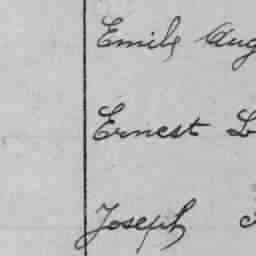 Emile Aug
Ernest L
Joseph